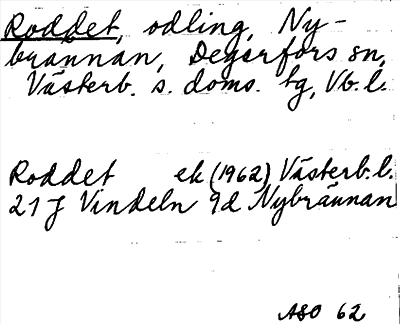 Roddet, odling, Ny-
brännan, Degerfors sn,
Västerb. s. doms. tg, Vb. l.
Roddet ek (1962) Västerb. l.
21 J Vindeln 9d Nybrännan
ASO 62